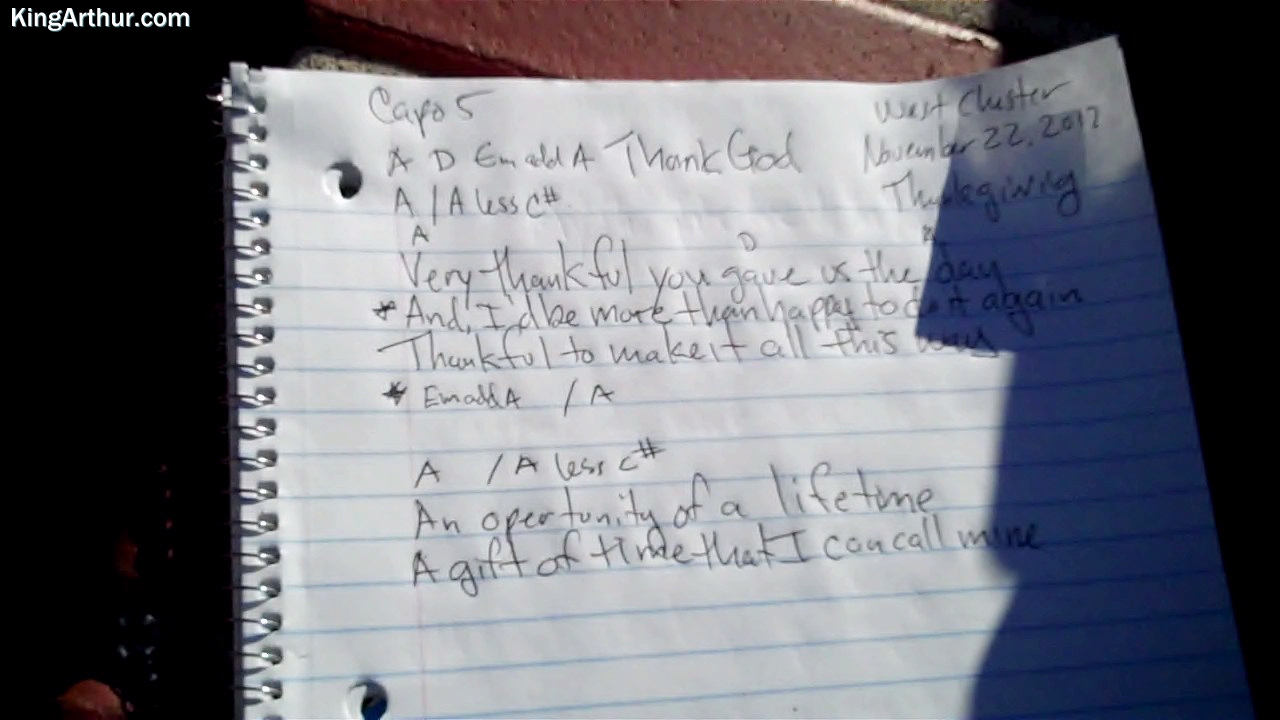 KingArthur.com
Capo 5
West Cluster
November 22, 2012
A D Em add A Thank God
Thanksgiving
A / A less C#
A D A
Very thankful you gave us the day
* And, I'd be more than happy to do it again
Thankful to make it all this way
* Em add A / A
A / A less C#
An opertunity of a lifetime
A gift of time that I can call mine